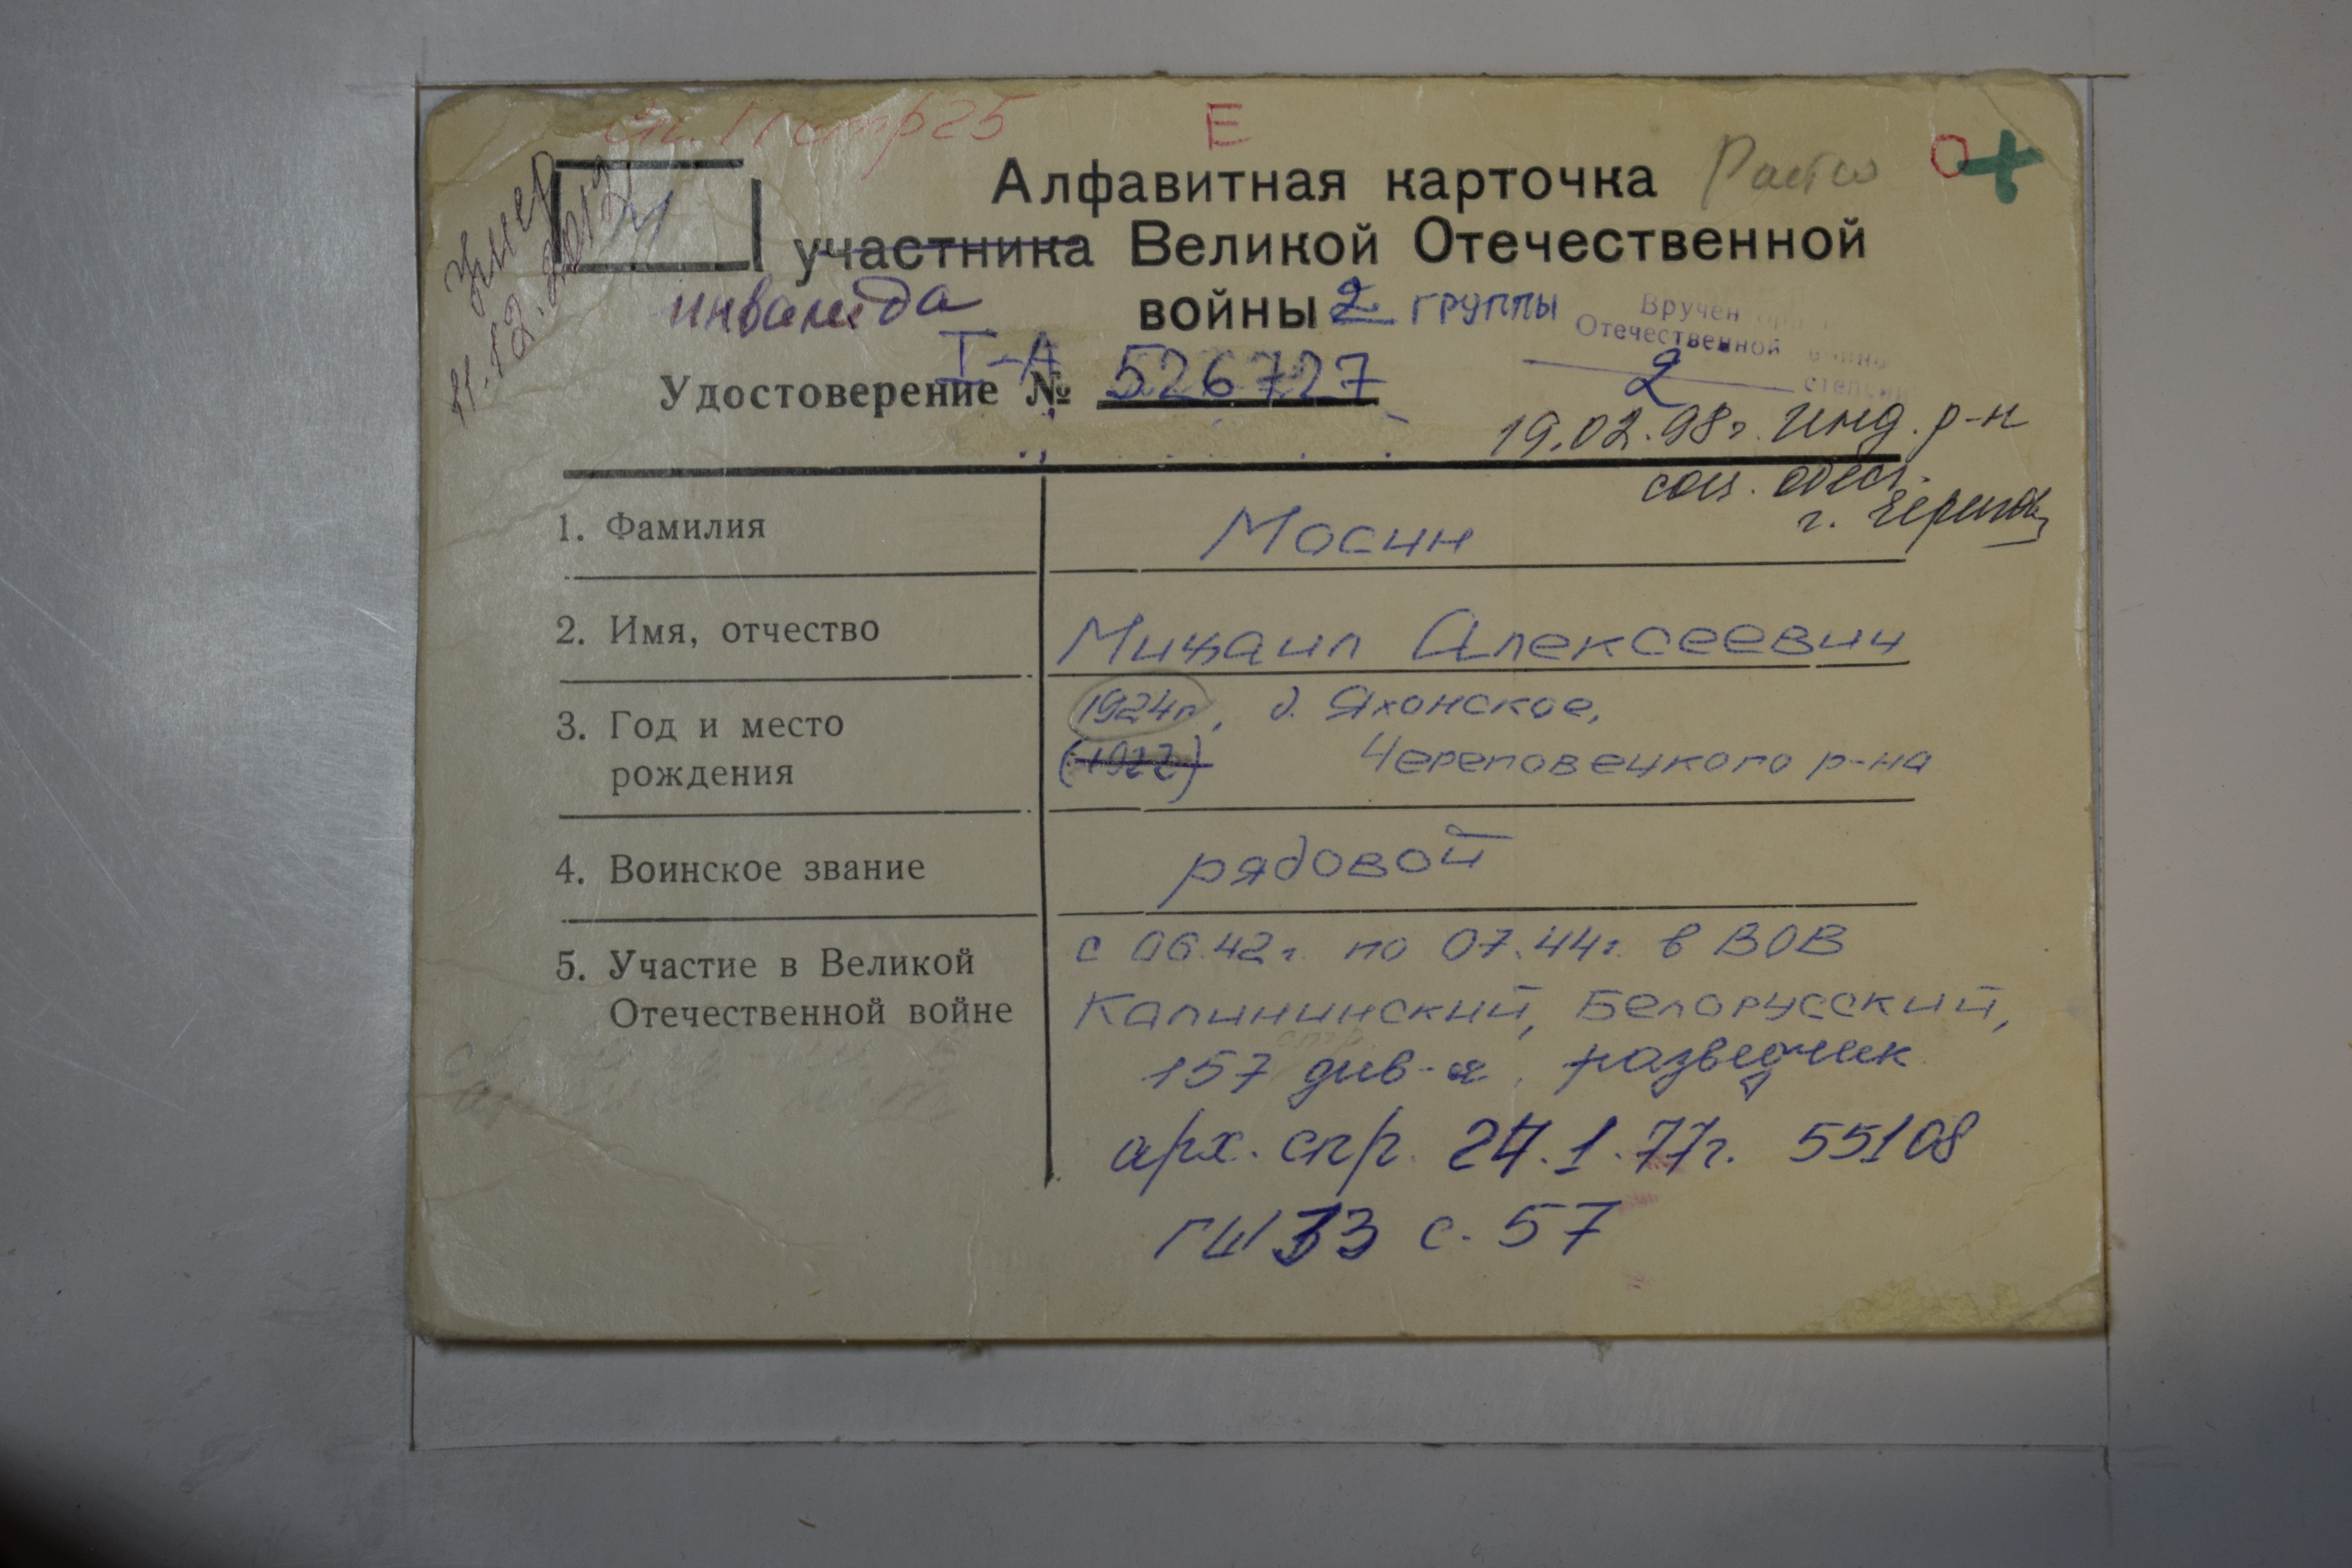 стр 25
Е
Умер
11.12.2012
М
Алфавитная карточка
участника Великой Отечественной
инвалида
войны 2 группы
Вручен орден
Отечественной войны
2 степени
I-А
Удостоверение № 526727
19.02.98г. Инд. р-н
соц. обесп.
г. Черепов
1. Фамилия
Мосин
2. Имя, отчество
Михаил Алексеевич
3. Год и место
рождения
1924г, д. Яхонское,
(1922) Череповецкого р-на
4. Воинское звание
рядовой
5. Участие в Великой
Отечественной войне
с 06.42г. по 07.44г. в ВОВ
Калининский, Белорусский,
стр.
157 див-я, разведчик
арх. спр. 24.1.77г. 55108
ГШ 33 с. 57